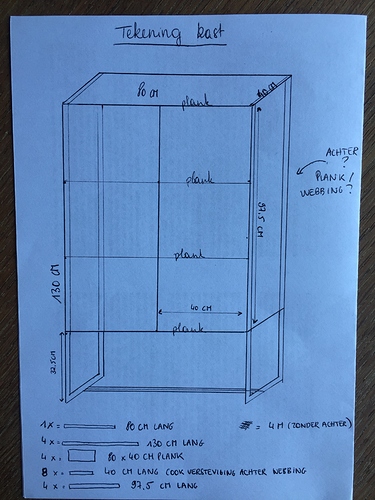 Tekening kast
80 CM
40 CM
plank
ACHTER
?
PLANK /
WEBBING?
plank
97,5 CM
plank
130 CM
40 CM
plank
32,5CM
1X = 80 CM LANG
= 4 M (ZONDER ACHTER)
4x = 130 CM LANG
4x = 80 x 40 CM PLANK
8x = 40 CM LANG (OOK VERSTEVIGING ACHTER WEBBING
4x = 97,5 CM LANG